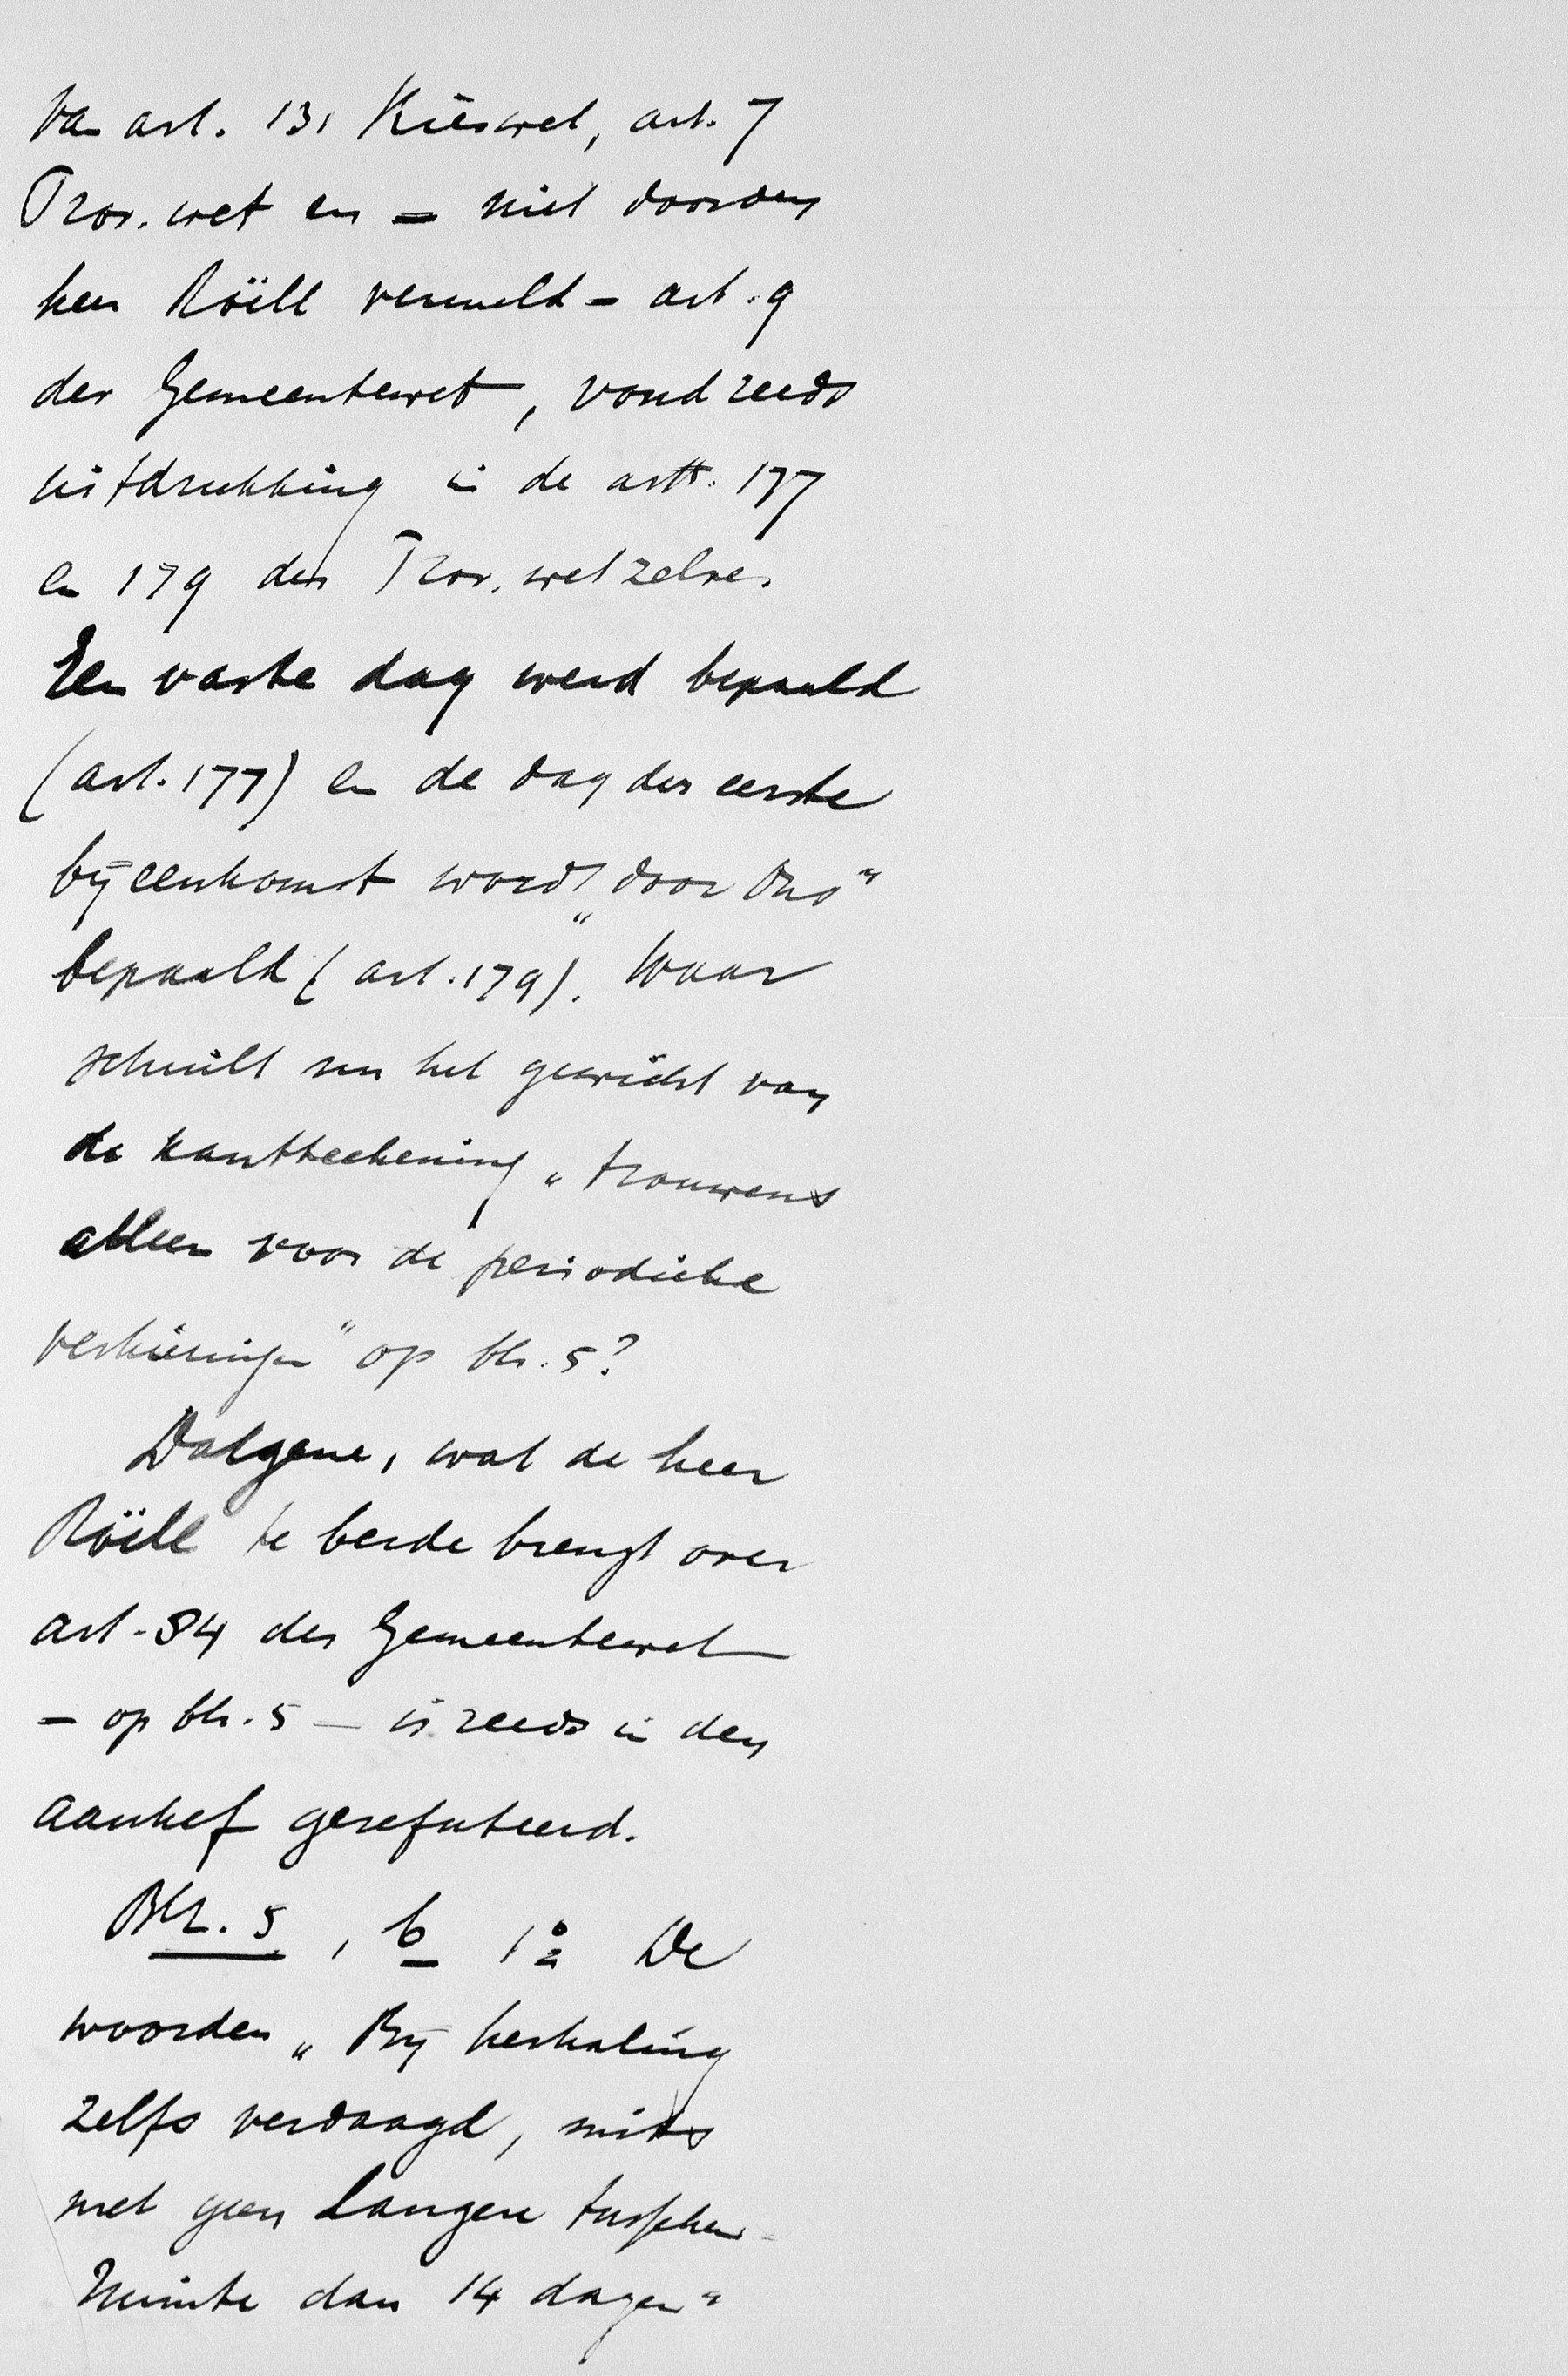 van art. 131 Kieswet, art. 7
Prov. wet en = niet door den
heer Röell vermeld - art. 9
der Gemeentewet, vond reeds
uitdrukking in de artt. 177
en 179 der Prov. wet zelve.
Een vaste dag werd bepaald
(art. 177) en de dag der eerste
bijeenkomst word „door Ons"
bepaald (art. 179). Waar
schuilt nu het gewicht van
de kantteekening „trouwens
alleen voor de periodieke
verkiezingen" op blz. 5?
Datgene, wat de heer
Röell te berde brengt over
art. 84 der Gemeentewet
- op blz. 5 - is reeds in den
aanhef gerefuteerd.
Blz. 5, b 1º De
woorden „Bij herhaling
zelfs verdaagd, mits
met geen langere tusschen-
ruimte dan 14 dagen"